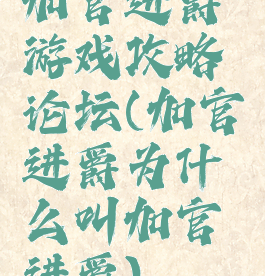 加官进爵
游戏攻略
论坛(加官
进爵为什
么叫加官
进爵)